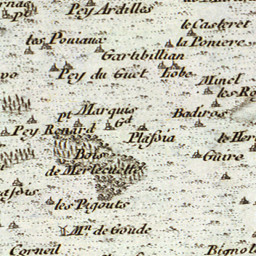 Pey Ardilles
le Casteret
tes Pouiaux
la Poniere
Gartibillian
Pey du Guet
Tobe
Minel
les Ro
pt Marquis
Gd
Badiros
Pey Renard
Plassia
le Her
Bois
de Merlechette
Guire
les Pigouts
Mn. de Goude
Corneil
Bignol